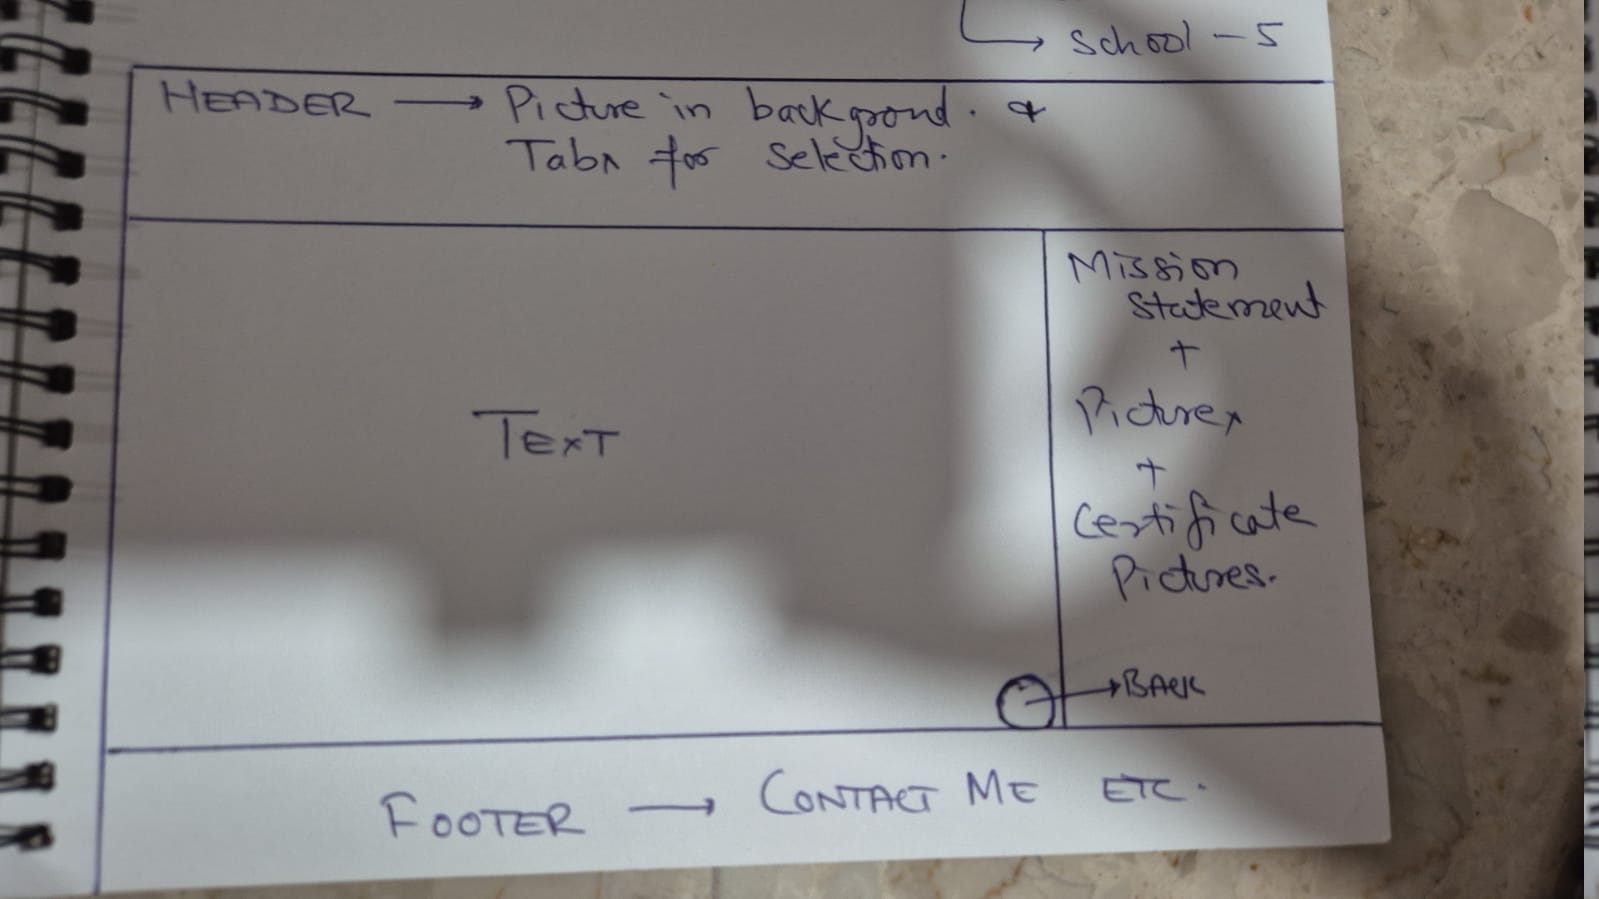 School - 5
HEADER → Picture in backgrond. &
Tabs for Selection.
Mission
Statement
+
Pictures
+
TEXT
Certificate
Pictures.
→ BACK
FOOTER → CONTACT ME ETC.